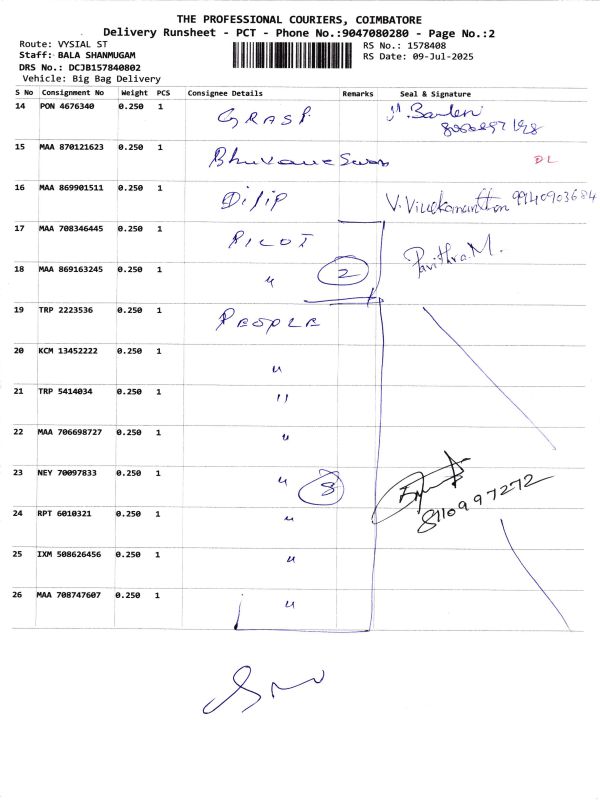 THE PROFESSIONAL COURIERS, COIMBATORE
Delivery Runsheet - PCT - Phone No.:9047080280 - Page No.:2
Route: VYSIAL ST
RS No.: 1578408
Staff: BALA SHANMUGAM
RS Date: 09-Jul-2025
DRS No.: DCJB157840802
Vehicle: Big Bag Delivery
S No Consignment No Weight PCS Consignee Details Remarks Seal & Signature
14 PON 4676340 0.250 1 GRASP
15 MAA 870121623 0.250 1 Bhuvaneswari DL
16 MAA 869901511 0.250 1 Dilip 9940903684
17 MAA 708346445 0.250 1 PILOT Pavithra.M.
18 MAA 869163245 0.250 1 " 2
19 TRP 2223536 0.250 1 PEOPLE
20 KCM 13452222 0.250 1 "
21 TRP 5414034 0.250 1 "
22 MAA 706698727 0.250 1 "
23 NEY 70097833 0.250 1 " 8
8110997272
24 RPT 6010321 0.250 1 "
25 IXM 508626456 0.250 1 "
26 MAA 708747607 0.250 1 "